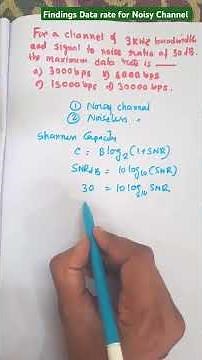 Findings Data rate for Noisy Channel
For a channel of 3KHz bandwidth
and signal to noise ratio of 30dB.
the maximum data rate is ___
a) 3000bps b) 6000bps
c) 15000bps d) 30000bps.
① Noisy channel
② Noiseless
Shannon Capacity
C = B log2 (1+SNR)
SNRdB = 10 log10 (SNR)
30 = 10 log10 SNR